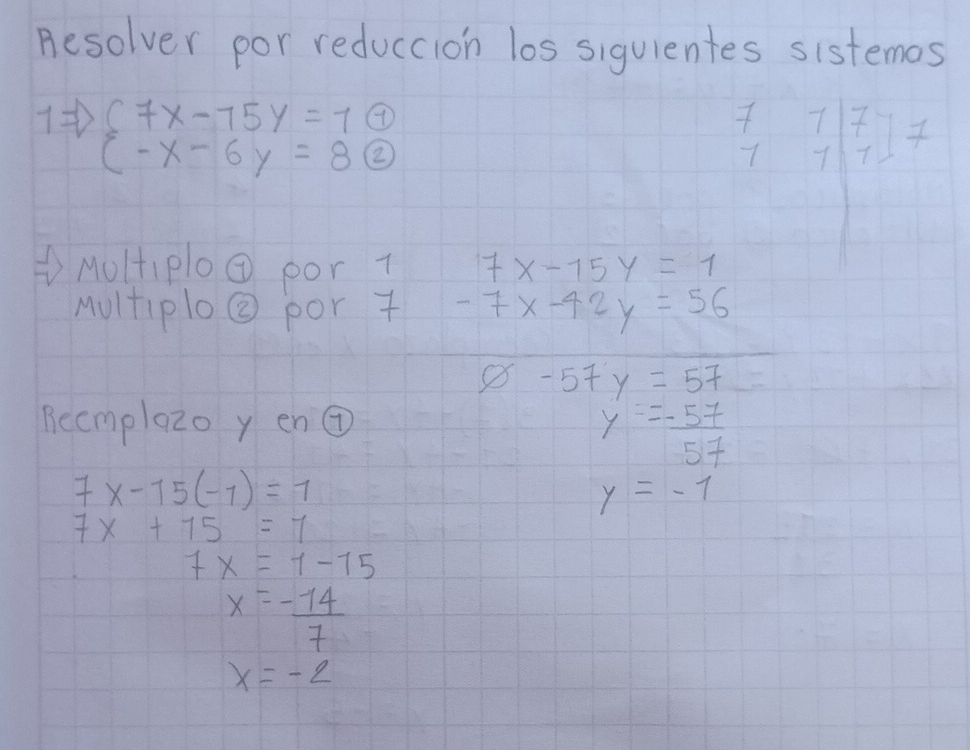 Resolver por reducción los siguientes sistemas
1⇒ { 7x - 15y = 1 ①
{ -x - 6y = 8 ②
7 1 | 7 ] 7
1 1 | 1 ]
⇒ Multiplo ① por 1 7x - 15y = 1
Multiplo ② por 7 -7x - 42y = 56
Ø -57y = 57
Reemplazo y en ① y = = -57
57
7x - 15(-1) = 1 y = -1
7x + 15 = 1
7x = 1 - 15
x = -14
7
x = -2